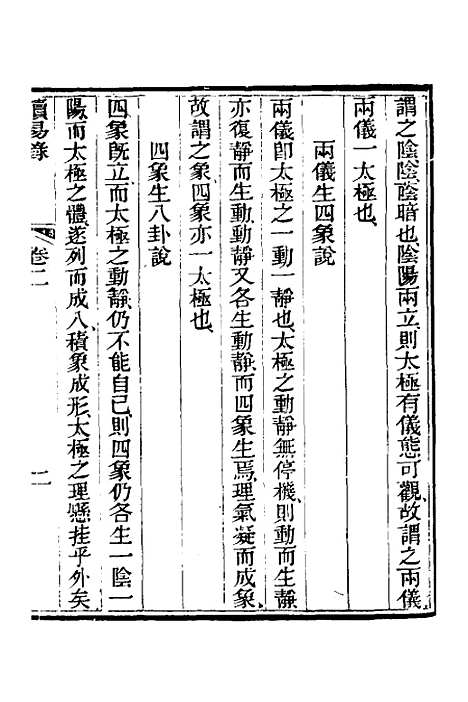 謂之陰陰蔭暗也、陰陽兩立、則太極有儀態可觀、故謂之兩儀
兩儀一太極也、
兩儀生四象說
兩儀卽太極之一動一靜也、太極之動靜無停機、則動而生靜
亦復靜而生動、動靜又各生動靜、而四象生焉、理氣凝而成象、
故謂之象、四象亦一太極也、
四象生八卦說
四象旣立、而太極之動靜、仍不能自已、則四象仍各生一陰一
陽、而太極之體、遂列而成八、積象成形、太極之理懸挂乎外矣
讀易錄
卷二
二